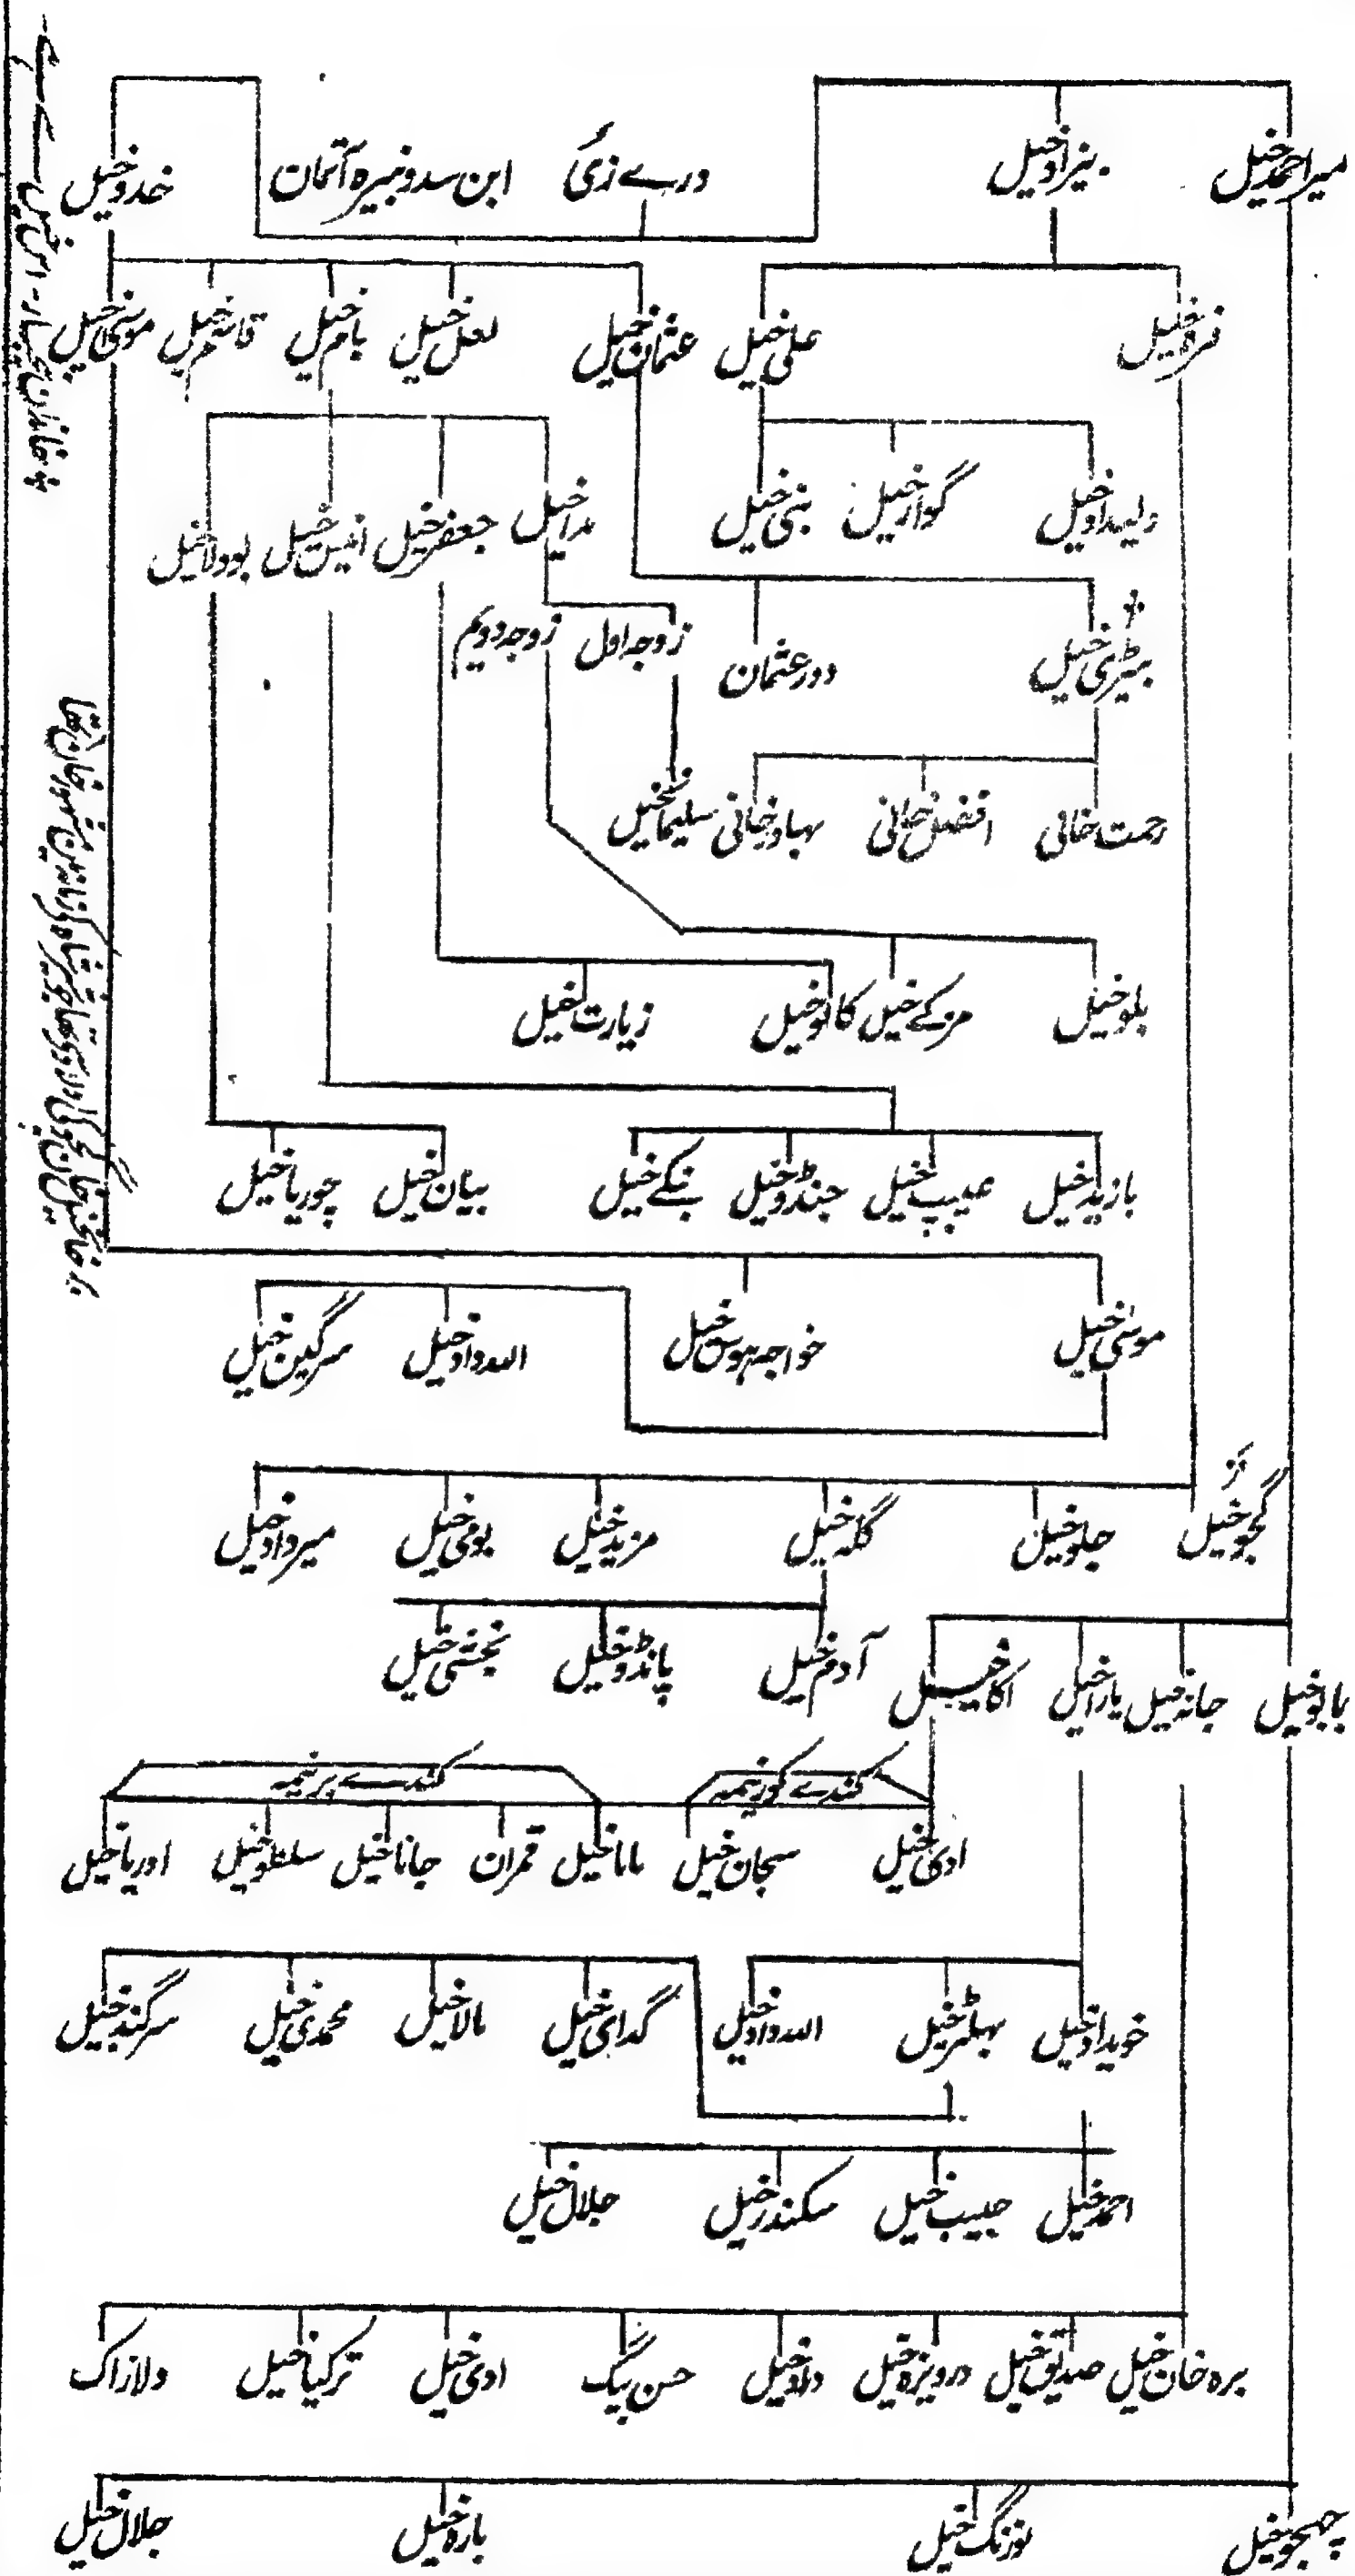 میراحمدخیل بنیرادخیل درے زئی ابن سدو نبیرہ آتمان خدوخیل
نرہ خیل علی خیل عثمان خیل لعل خیل بام خیل قاسم خیل موسی خیل
ولیدادخیل گوارخیل بنی خیل مداخیل جعفرخیل انیس خیل بودلاخیل
بیٹری خیل دور عثمان زوجہ اول زوجہ دویم
رحمت خانی افضل خانی بہادرخانی سلیماخیل
بلوخیل مزکے خیل کالوخیل زیارت خیل
بازیدخیل عیب خیل جنڈوخیل بنکے خیل بیان خیل چوریاخیل
موسٰی خیل خواجہ ہوس خیل اللہ دادخیل سرگین خیل
گجوخیل جلوخیل گلہ خیل مزیدخیل بومی خیل میردادخیل
آدم خیل پانڈوخیل بخشی خیل
بابوخیل جانہ خیل یاراخیل اکاخیل
کندے کوزنیمہ کندے برنیمہ
ادی خیل سبحان خیل ماناخیل قمران جاناخیل سلطوخیل اوریاخیل
خویدادخیل بہلترخیل اللہ دادخیل گدای خیل مالاخیل محمدی خیل سرکندخیل
احمدخیل حبیب خیل سکندرخیل جلال خیل
برہ خان خیل صدیق خیل درویزہ خیل دادوخیل حسن بیگ ادی خیل ترکیاخیل دلازاک
چھجوخیل نورنگ خیل بارہ خیل جلال خیل